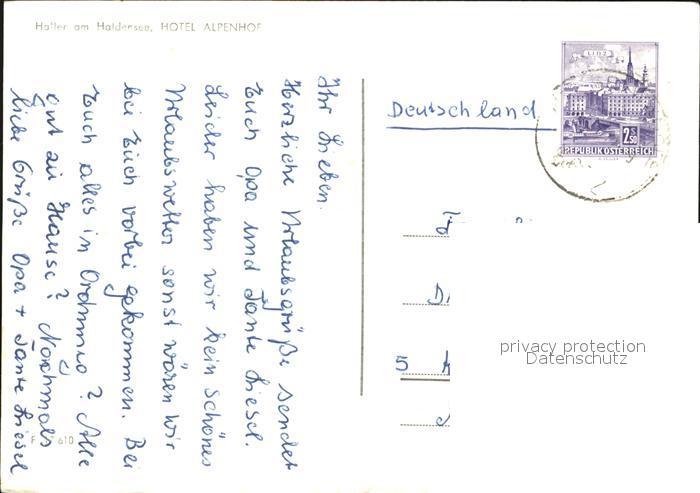 Haller am Haldensee, HOTEL ALPENHOF
Ihr Lieben.
Herzliche Urlaubsgrüße sendet
Euch Opa und Tante Liesel.
Leider haben wir kein schönes
Urlaubswetter sonst wären wir
bei Euch vorbei gekommen. Bei
Euch alles in Ordnung? Alle
gut zu Hause? Nochmals
liebe Grüße Opa + Tante Liesel
610
Deutschland
LINZ
2.50
REPUBLIK ÖSTERREICH
5
privacy protection
Datenschutz